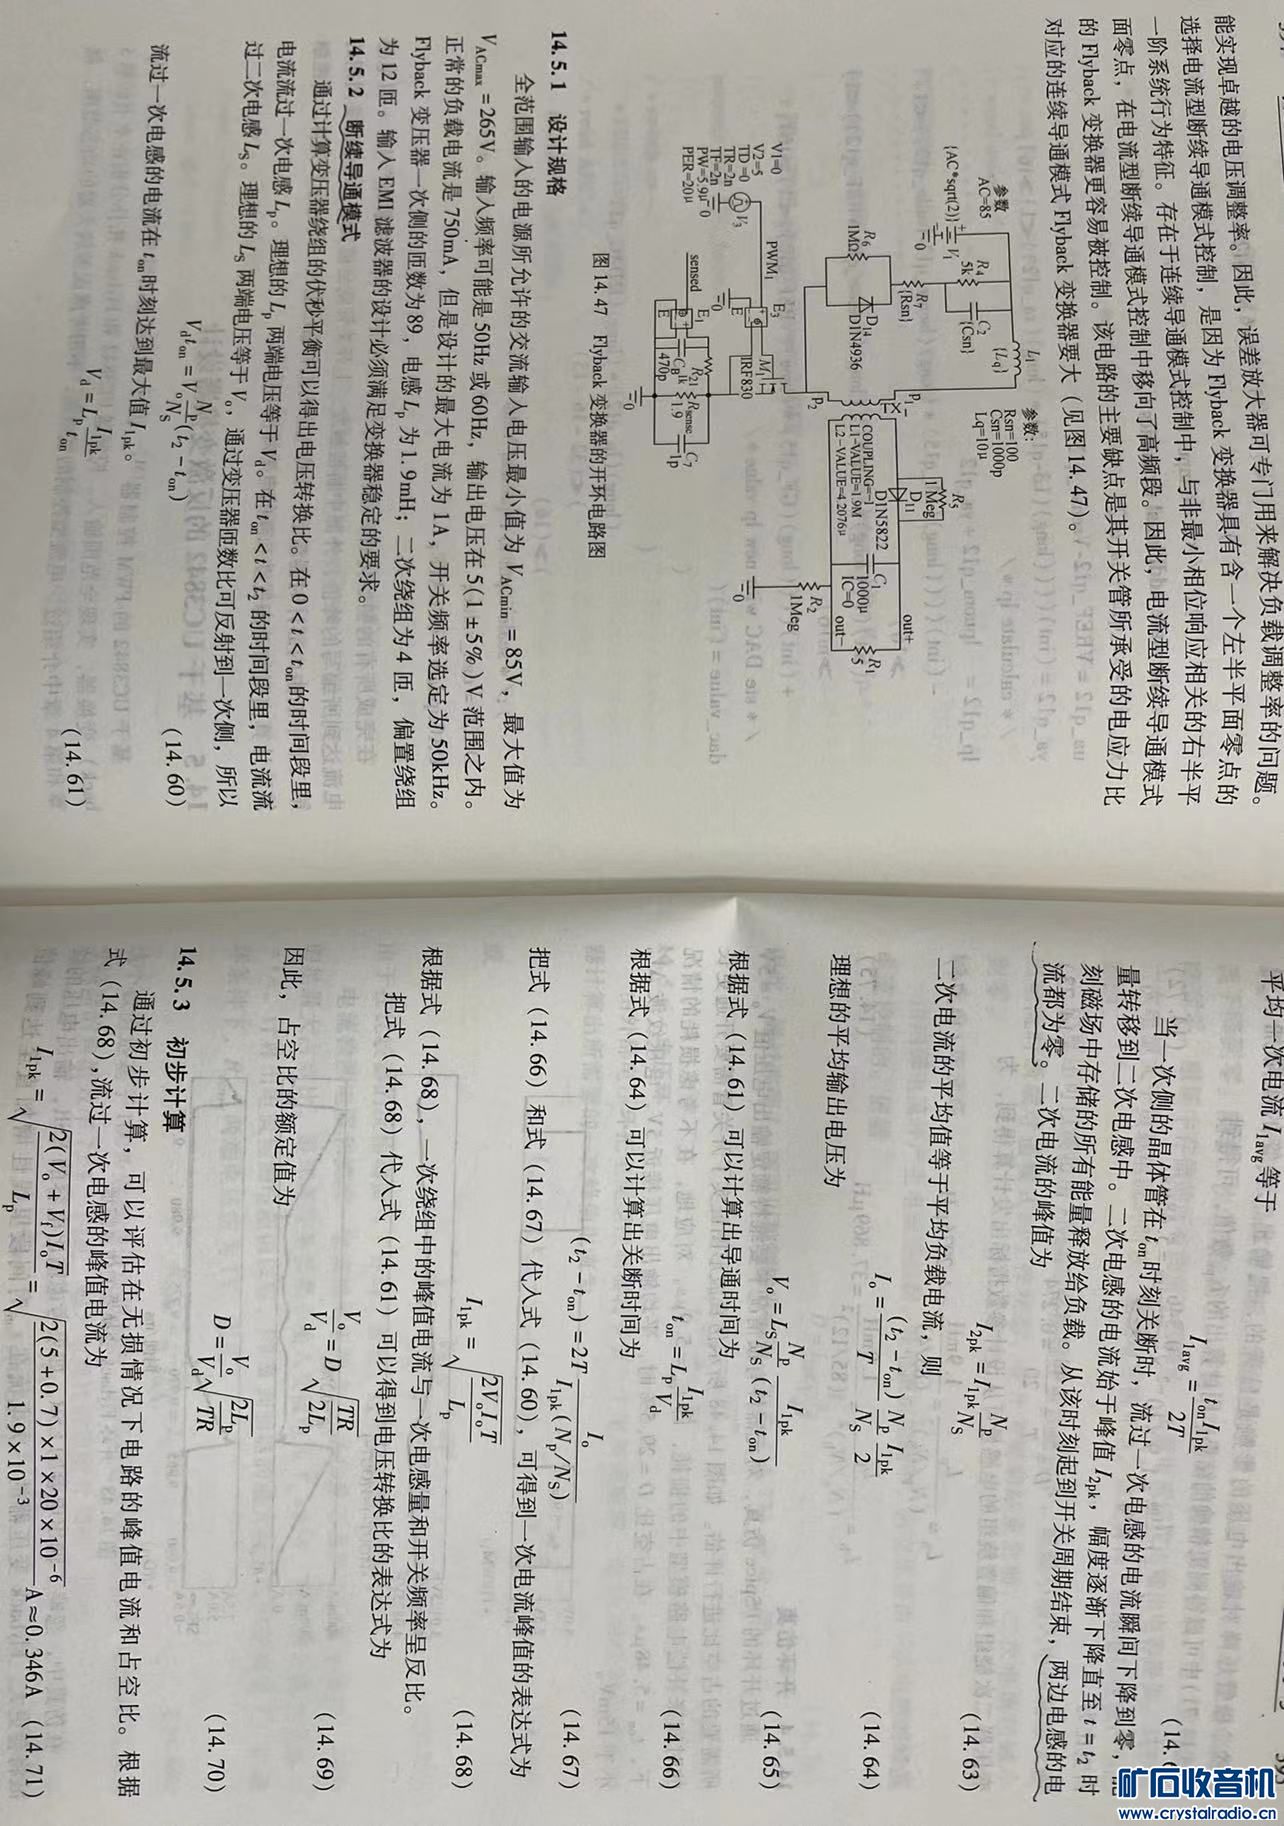 能实现卓越的电压调整率。因此，误差放大器可专门用来解决负载调整率的问题。
选择电流型断续导通模式控制，是因为 Flyback 变换器具有含一个左半平面零点的
一阶系统行为特征。存在于连续导通模式控制中，与非最小相位响应相关的右半平
面零点，在电流型断续导通模式控制中移向了高频段。因此，电流型断续导通模式
的 Flyback 变换器更容易被控制。该电路的主要缺点是其开关管所承受的电应力比
对应的连续导通模式 Flyback 变换器要大（见图14.47）。
参数
AC=85
{AC*sqrt(2)}
V₁
=0
R₄
5k
C₂
{Csn}
L₁
{Lq}
参数:
Rsn=100
Csn=1000p
Lq=10μ
R₇
{Rsn}
R₆
1MΩ
D₁₄
DIN4936
P₁
P₂
COUPLING=1
L1-VALUE=1.9M
L2-VALUE=4.2076μ
R₅
1Meg
D₁₁
D1N5822
C₁
1000μ
IC=0
out+
out−
R₁
5
R₂
1Meg
=0
V1=0
V2=5
TD=0
TR=2n
TF=2n
PW=5.9μ
PER=20μ
V₃
=0
PWM₁
E₃
E
M₁
IRF830
sensed
E₁
E
C₈
470p
R₂₁
1k
Rsense
1.9
C₇
1p
=0
图14.47 Flyback 变换器的开环电路图
14.5.1 设计规格
全范围输入的电源所允许的交流输入电压最小值为 V_ACmin = 85V，最大值为
V_ACmax = 265V。输入频率可能是 50Hz 或 60Hz，输出电压在 5(1±5%)V 范围之内。
正常的负载电流是 750mA，但是设计的最大电流为 1A，开关频率选定为 50kHz。
Flyback 变压器一次侧的匝数为 89，电感 L_p 为 1.9mH；二次绕组为 4 匝，偏置绕组
为 12 匝。输入 EMI 滤波器的设计必须满足变换器稳定的要求。
14.5.2 断续导通模式
通过计算变压器绕组的伏秒平衡可以得出电压转换比。在 0 < t < t_on 的时间段里，
电流流过一次电感 L_p。理想的 L_p 两端电压等于 V_d。在 t_on < t < t₂ 的时间段里，电流流
过二次电感 L_S。理想的 L_S 两端电压等于 V_o，通过变压器匝数比可反射到一次侧，所以
V_d t_on = V_o (N_p/N_S)(t₂ − t_on) （14.60）
流过一次电感的电流在 t_on 时刻达到最大值 I_1pk。
V_d = L_p (I_1pk/t_on) （14.61）
平均一次电流 I_1avg 等于
I_1avg = t_on I_1pk/2T
当一次侧的晶体管在 t_on 时刻关断时，流过一次电感的电流瞬间下降到零，
量转移到二次电感中。二次电感的电流始于峰值 I_2pk，幅度逐渐下降直至 t = t₂ 时
刻磁场中存储的所有能量释放给负载。从该时刻起到开关周期结束，两边电感的电
流都为零。二次电流的峰值为
I_2pk = I_1pk (N_p/N_S) （14.63）
二次电流的平均值等于平均负载电流，则
I_o = ((t₂ − t_on)/T)(N_p/N_S)(I_1pk/2) （14.64）
理想的平均输出电压为
V_o = L_S (N_p/N_S)(I_1pk/(t₂ − t_on)) （14.65）
根据式（14.61）可以计算出导通时间为
t_on = L_p (I_1pk/V_d) （14.66）
根据式（14.64）可以计算出关断时间为
(t₂ − t_on) = 2T I_o/(I_1pk(N_p/N_S)) （14.67）
把式（14.66）和式（14.67）代入式（14.60），可得到一次电流峰值的表达式为
I_1pk = √(2V_o I_o T/L_p) （14.68）
根据式（14.68），一次绕组中的峰值电流与一次电感量和开关频率呈反比。
把式（14.68）代入式（14.61）可以得到电压转换比的表达式为
V_o/V_d = D√(TR/2L_p) （14.69）
因此，占空比的额定值为
D = (V_o/V_d)√(2L_p/TR) （14.70）
14.5.3 初步计算
通过初步计算，可以评估在无损情况下电路的峰值电流和占空比。根据
式（14.68），流过一次电感的峰值电流为
I_1pk = √(2(V_o + V_f)I_o T/L_p) = √(2(5+0.7)×1×20×10⁻⁶/1.9×10⁻³) A≈0.346A （14.71）
矿石收音机
www.crystalradio.cn